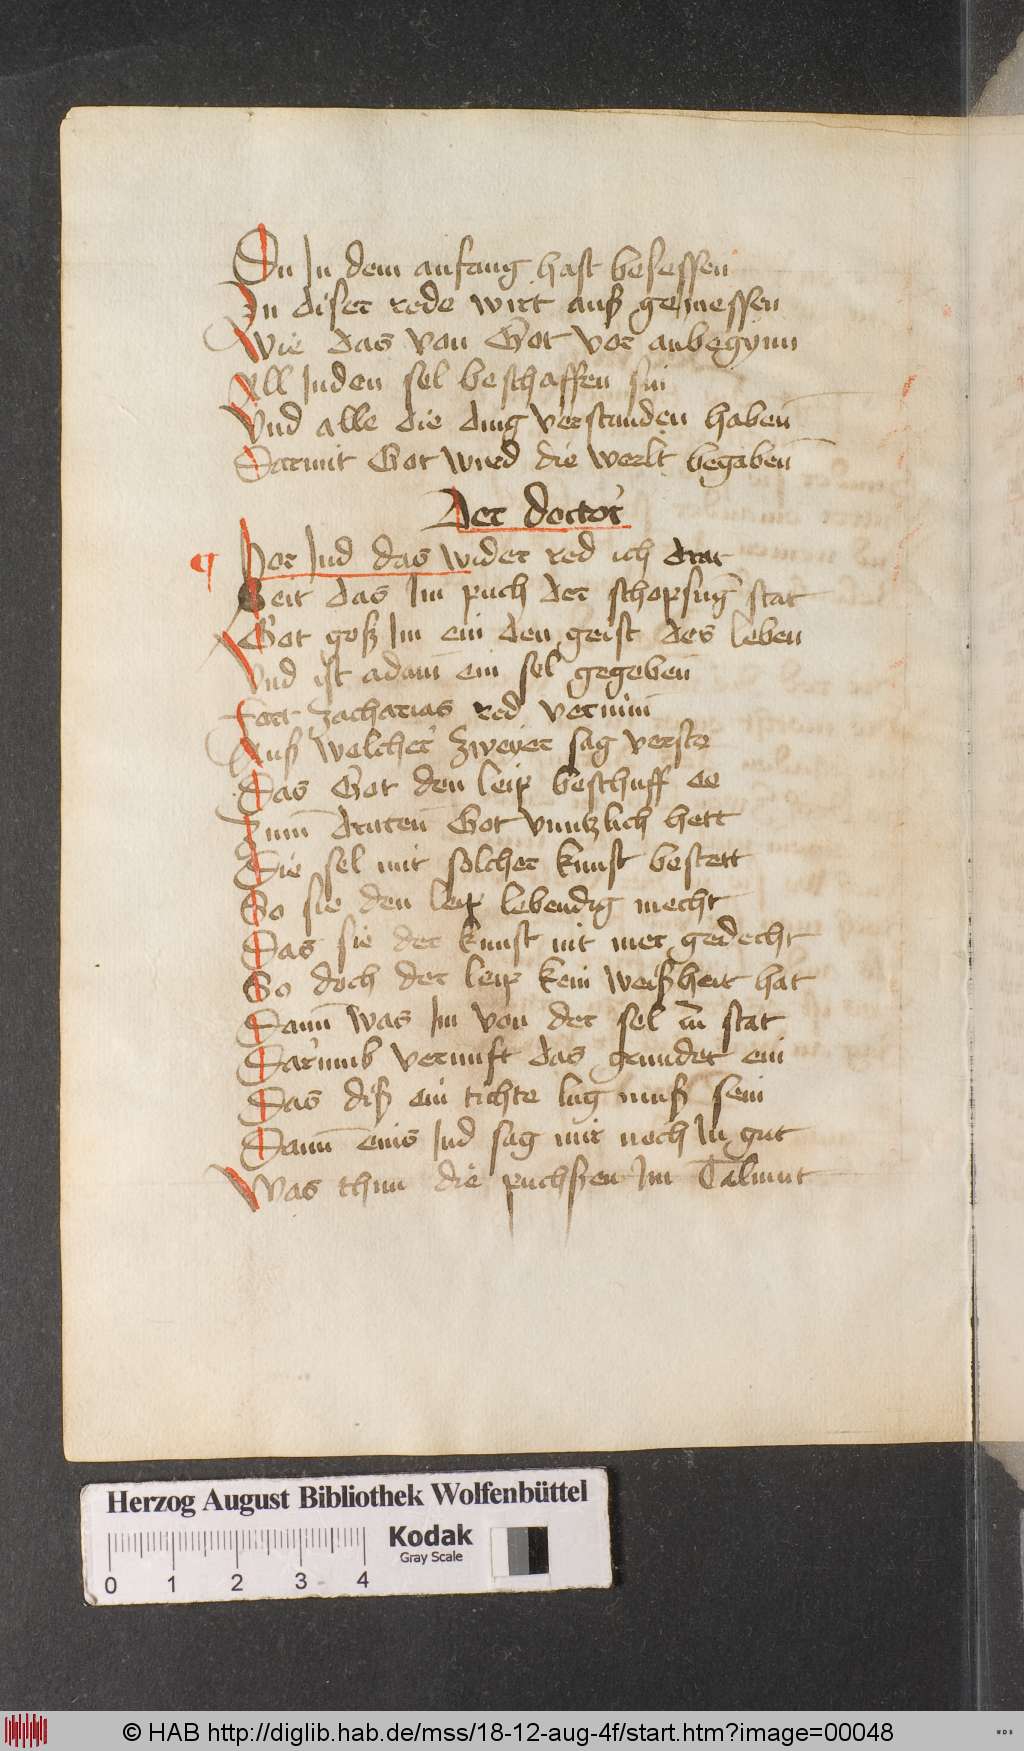 Du In dem anfang hast besessen
In diser rede wirt auß gemessen
Wie das von Got vor anbegynn
All Juden sel beschaffen sin
Vnd alle die ding verstanden haben̄
Darmit Got wurd die werlt begaben̄
Der doctor
¶ Hor Jud das wider red ich drat
Seit das Im puch der schopfuḡ stat
Got goß Im ein den geist des leben
Vnd ist adam̄ ein sel gegeben̄
Fort zacharias red vernim̄
Auß welcher zweyer sag verste
Das Got den leip beschuff ee
Zum̄ Got vnutzlich hett
Die sel mit solcher kunst bestett
So sie den leip lebendig mecht
Das sie der kunst nit mer gedecht
So doch der leip kein weißheit hat
Dann̄ was Im von der sel in̄ stat
Darumb vernuft das grundet ein
Das diß ein tichte lug muß sein
Dann̄ eins Jud sag mir noch In gut
Was thun die puchssen Im Talmut
Herzog August Bibliothek Wolfenbüttel
Kodak
Gray Scale
0 1 2 3 4
© HAB http://diglib.hab.de/mss/18-12-aug-4f/start.htm?image=00048